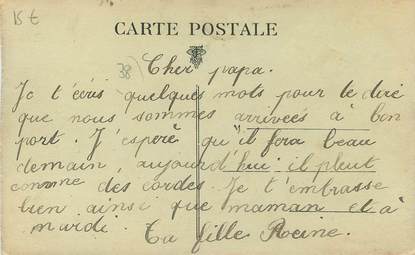 15 €
CARTE POSTALE
38)
Cher papa.
Je t'écris quelques mots pour te dire
que nous sommes arrivées à bon
port. J'espère qu'il fera beau
demain, aujourd'hui il pleut
comme des cordes. Je t'embrasse
bien ainsi que maman et à
mardi. Ta fille Reine.